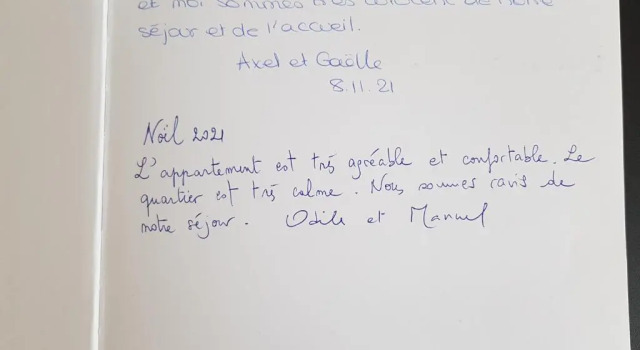 et moi sommes très de notre
séjour et de l'accueil.
Axel et Gaëlle
8.11.21
Noël 2021
L'appartement est très agréable et confortable. Le
quartier est très calme. Nous sommes ravis de
notre séjour. Odile et Manuel